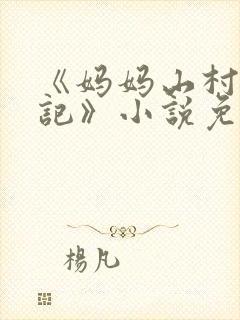 《妈妈山村
记》小説免
楊凡